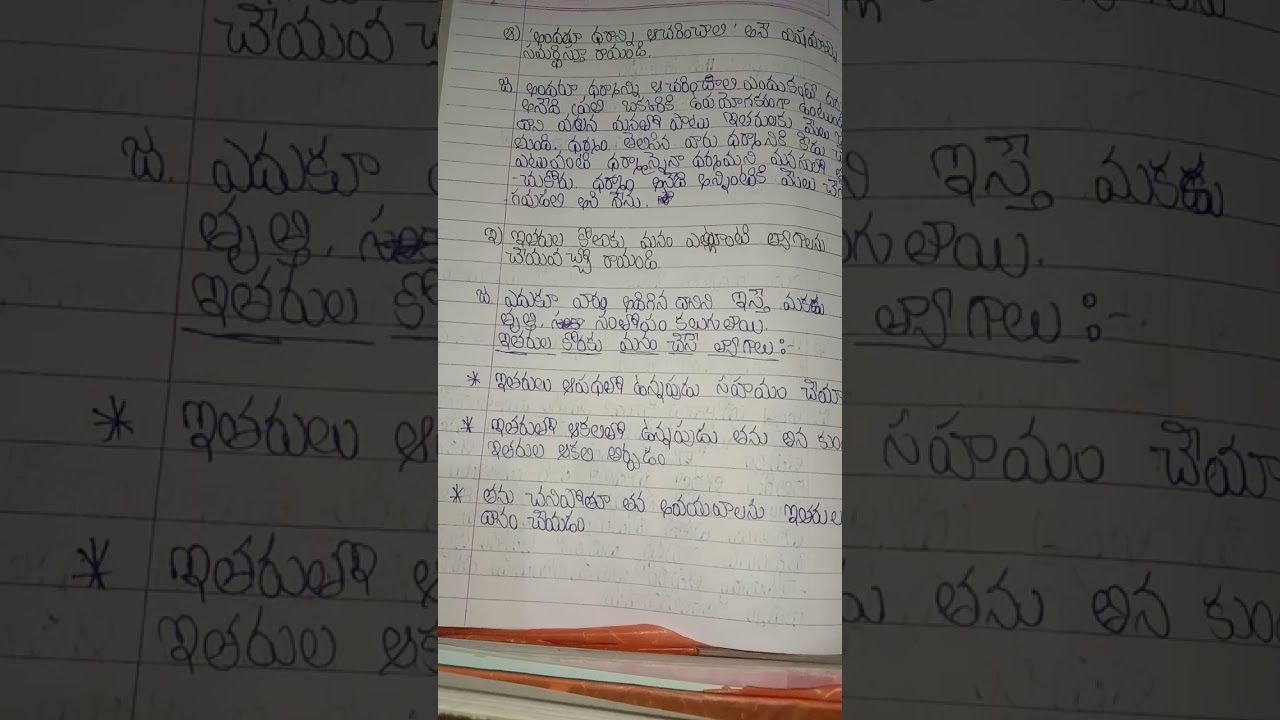 ఆ) 'అందరూ ధర్మాన్ని ఆచరించాలి' అనే విషయాన్ని
సమర్థిస్తూ రాయండి.
జ. అందరూ ధర్మాన్ని ఆచరించాలి ఎందుకంటే
అనేది ప్రతి ఒక్కరికి ఉపయోగకరంగా
దాని వలన మనతో పాటు ఇతరులకు మేలు
ధర్మం తెలిసిన వారు ధర్మానికి కీడు
ఎటువంటి ధర్మాన్నైనా ధర్మమని మనసులో
ధర్మం అనేది అన్నింటికి మేలు
ఇ) ఇతరుల కొరకు మనం ఎట్లాంటి త్యాగాలను
చేయవచ్చో రాయండి.
జ. ఎదుకూ వారు అడిగిన దానిని ఇస్తే మకు
తృప్తి, సంతోషం కలుగుతాయి.
ఇతరుల కొరకు మనం చేసే త్యాగాలు :-
* ఇతరులు ఆపదలో ఉన్నపుడు సహయం
* ఇతరుతో ఆకలితో ఉన్నపుడు తను తిన
ఇతరుల ఆకలి తీర్చుడం
* తను చనిపోతూ తన అవయవాలను
దానం చేయడం